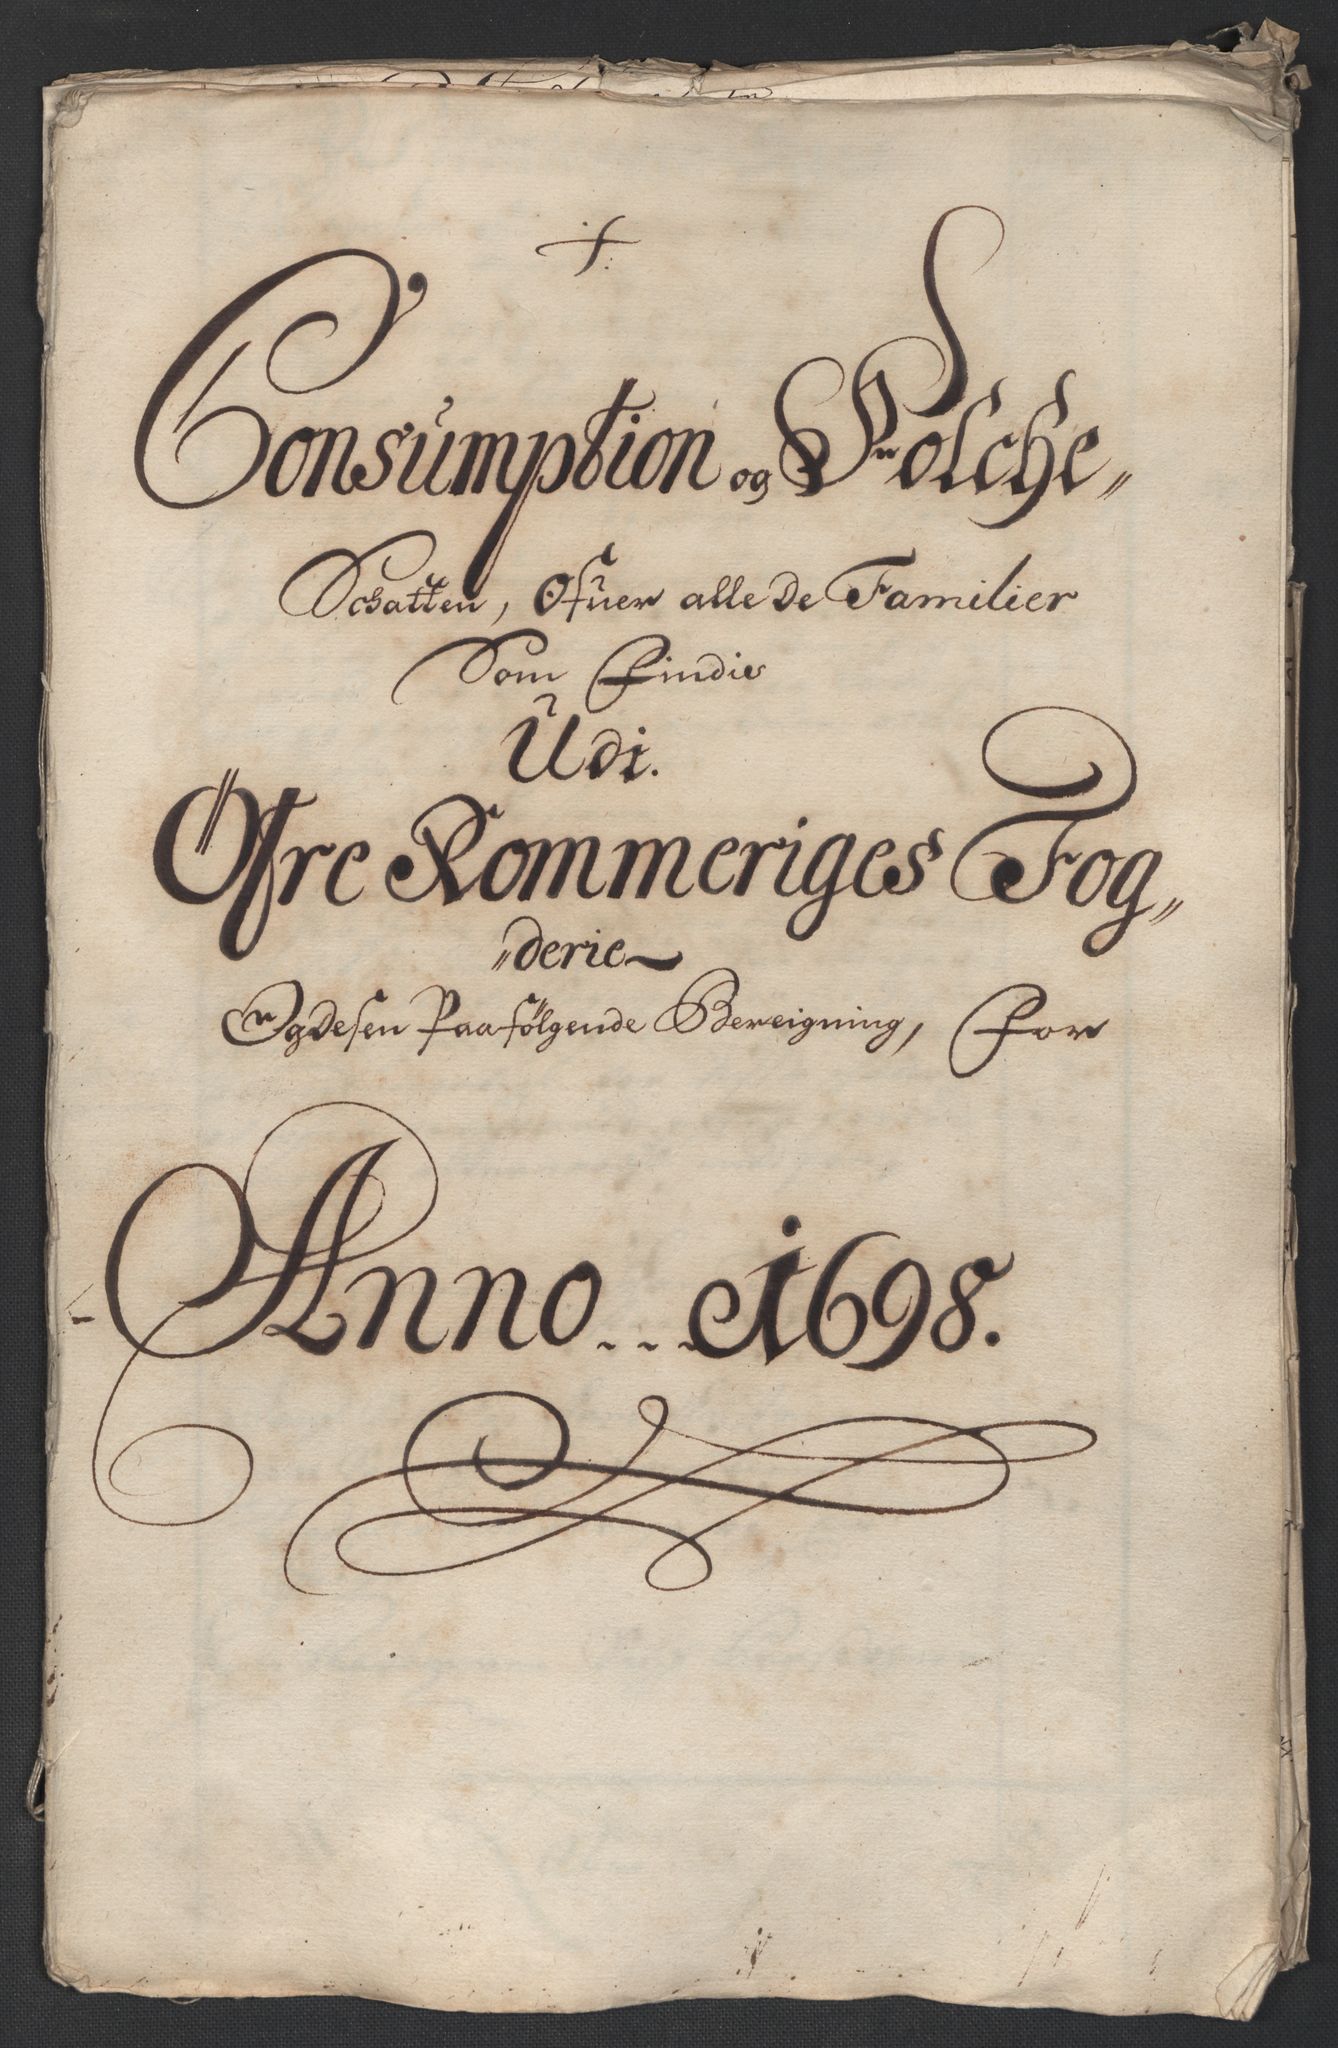 Consumption og Folche„
Schatten, Ofuer alle de Familier
Som Findis
Udi.
Öfre Rommeriges Fog„
„derie
Og desen Paafölgende Bereigning, For
Anno 1698.